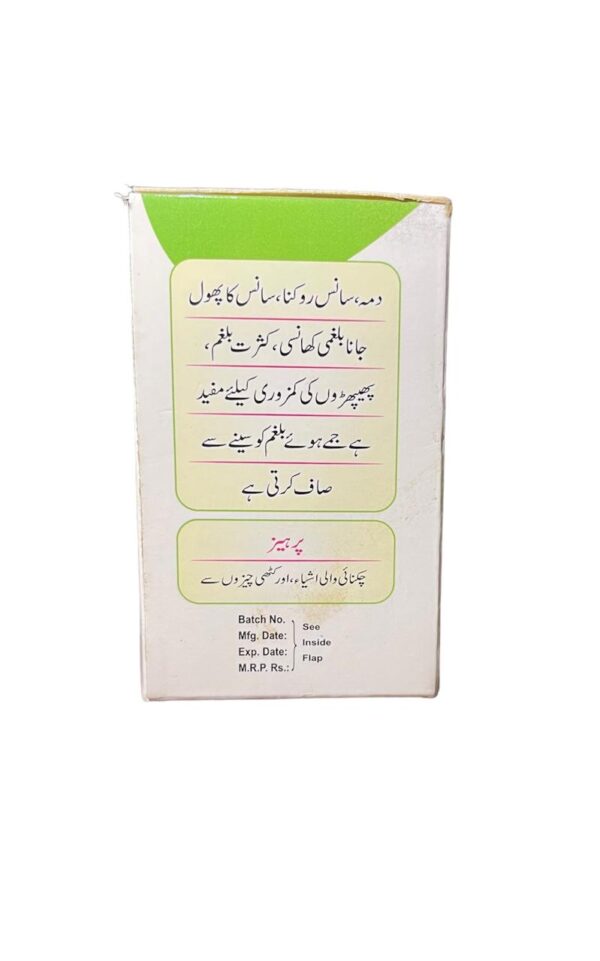 دمہ، سانس روکنا، سانس کا پھول
جانا بلغمی کھانسی، کثرت بلغم،
پھیپھڑوں کی کمزوری کیلئے مفید
ہے جمے ہوئے بلغم کو سینے سے
صاف کرتی ہے
پرہیز
چکنائی والی اشیاء، اور کٹھی چیزوں سے
Batch No.
Mfg. Date:
Exp. Date:
M.R.P. Rs.:
See
Inside
Flap